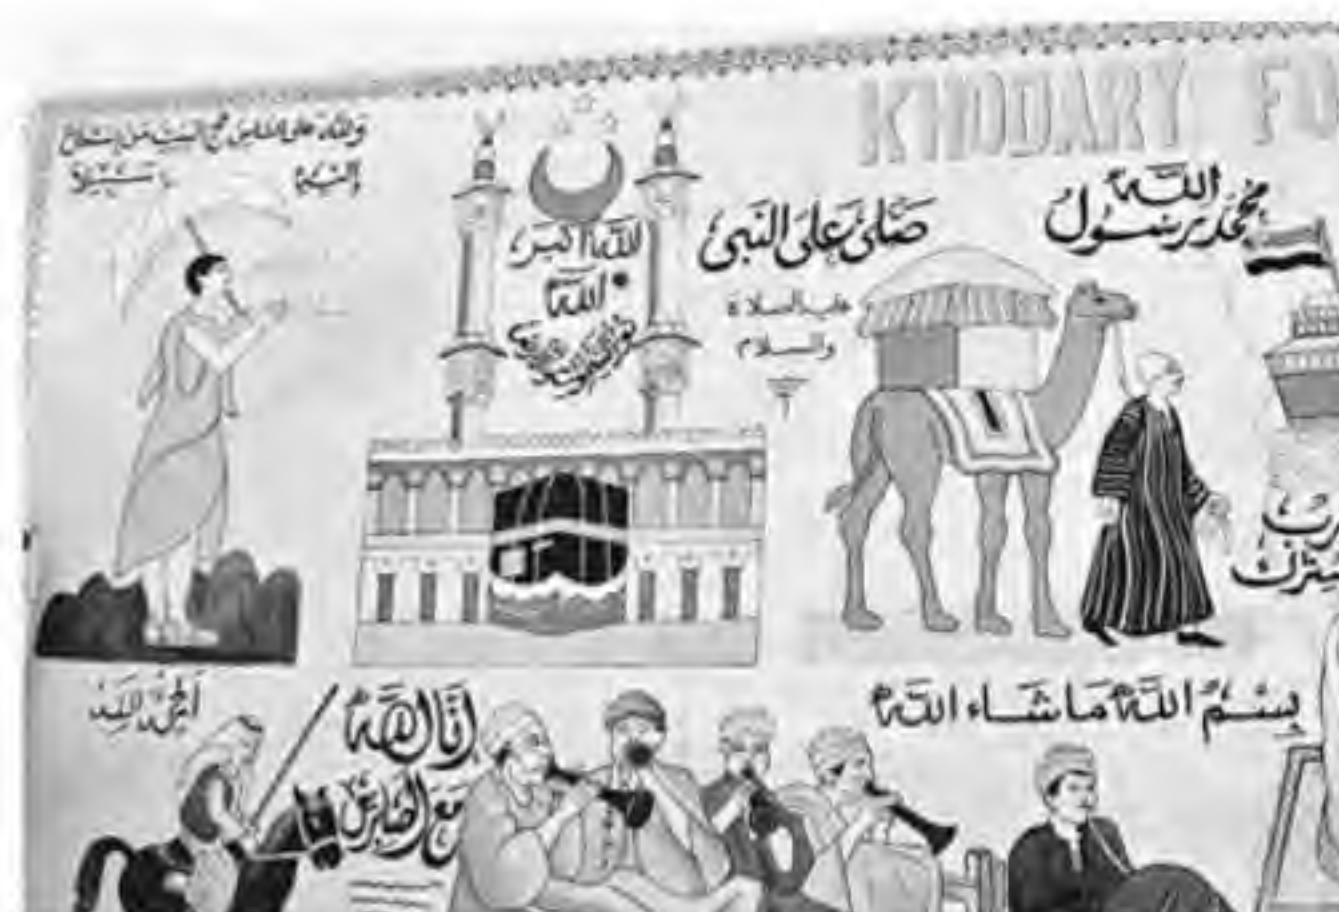 ولله على الناس حج البيت من استطاع
إليه سبيلا
KHODARY FU
الله أكبر
الله
صلى على النبى
عليه الصلاة
والسلام
محمد رسول الله
الحمد لله
إن الله
مع الصابرين
بسم الله ما شاء الله